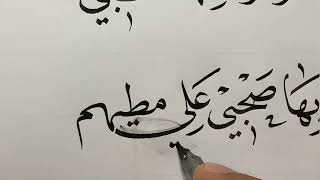 بِهَا صَحْبِيْ عَلِي مطيهم